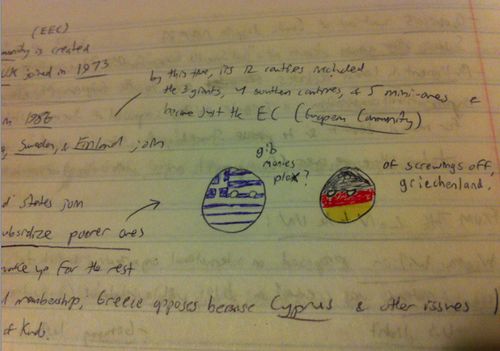 (EEC)
is created
UK joined in 1973
by this time, its 12 contries included
the 3 giants, 4 southern contries, & 5 mini-ones &
in 1986
became just the EC (European Community)
Sweden, & Finland join
gib
monies
plox?
of screwings off,
griechenland,
states join
subsidize poorer ones
make up for the rest
membership, Greece opposes because Cyprus & other issues
of Kurds.